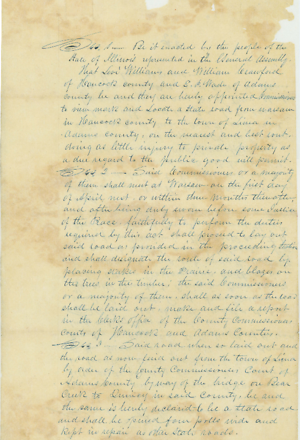 Sec 1 — Be it enacted by the people of the
State of Illinois represented in the General Assembly,
That Levi Williams and William Crawford
of Hancock county and E. B. Wade of Adams
county be and they are hereby appointed Commissioners
to view mark and Locate a state road from Warsaw
in Hancock county to the town of Lima in
Adams county, on the nearest and best
doing as little injury to private property as
a due regard to the public good will permit.
Sec 2 — Said Commissioners or a majority
of them shall meet at Warsaw on the first day
of April next or within three months thereafter
and after being duly sworn before some Justice
of the Peace faithfully to perform the duties
required by this act shall proceed to lay out
said road as provided in the preceeding section
and shall designate the route of said road by
placing stakes in the Prairie and blazes on
the trees in the timber; the said Commissioners
or a majority of them, shall as soon as the road
shall be laid out make and file a report
in the clerks office of the County Commissioners
Courts of Hancock and Adams Counties.
Sec 3 — Said road when so laid out and
the road as now laid out from the town of Lima
by order of the County Commissioners Court of
Adams county by way of the bridge on Bear
Creek to Quincy in said County, be and
the same is hereby declared to be a state road
and shall be opened four poles wide and
kept in repair as other state roads.